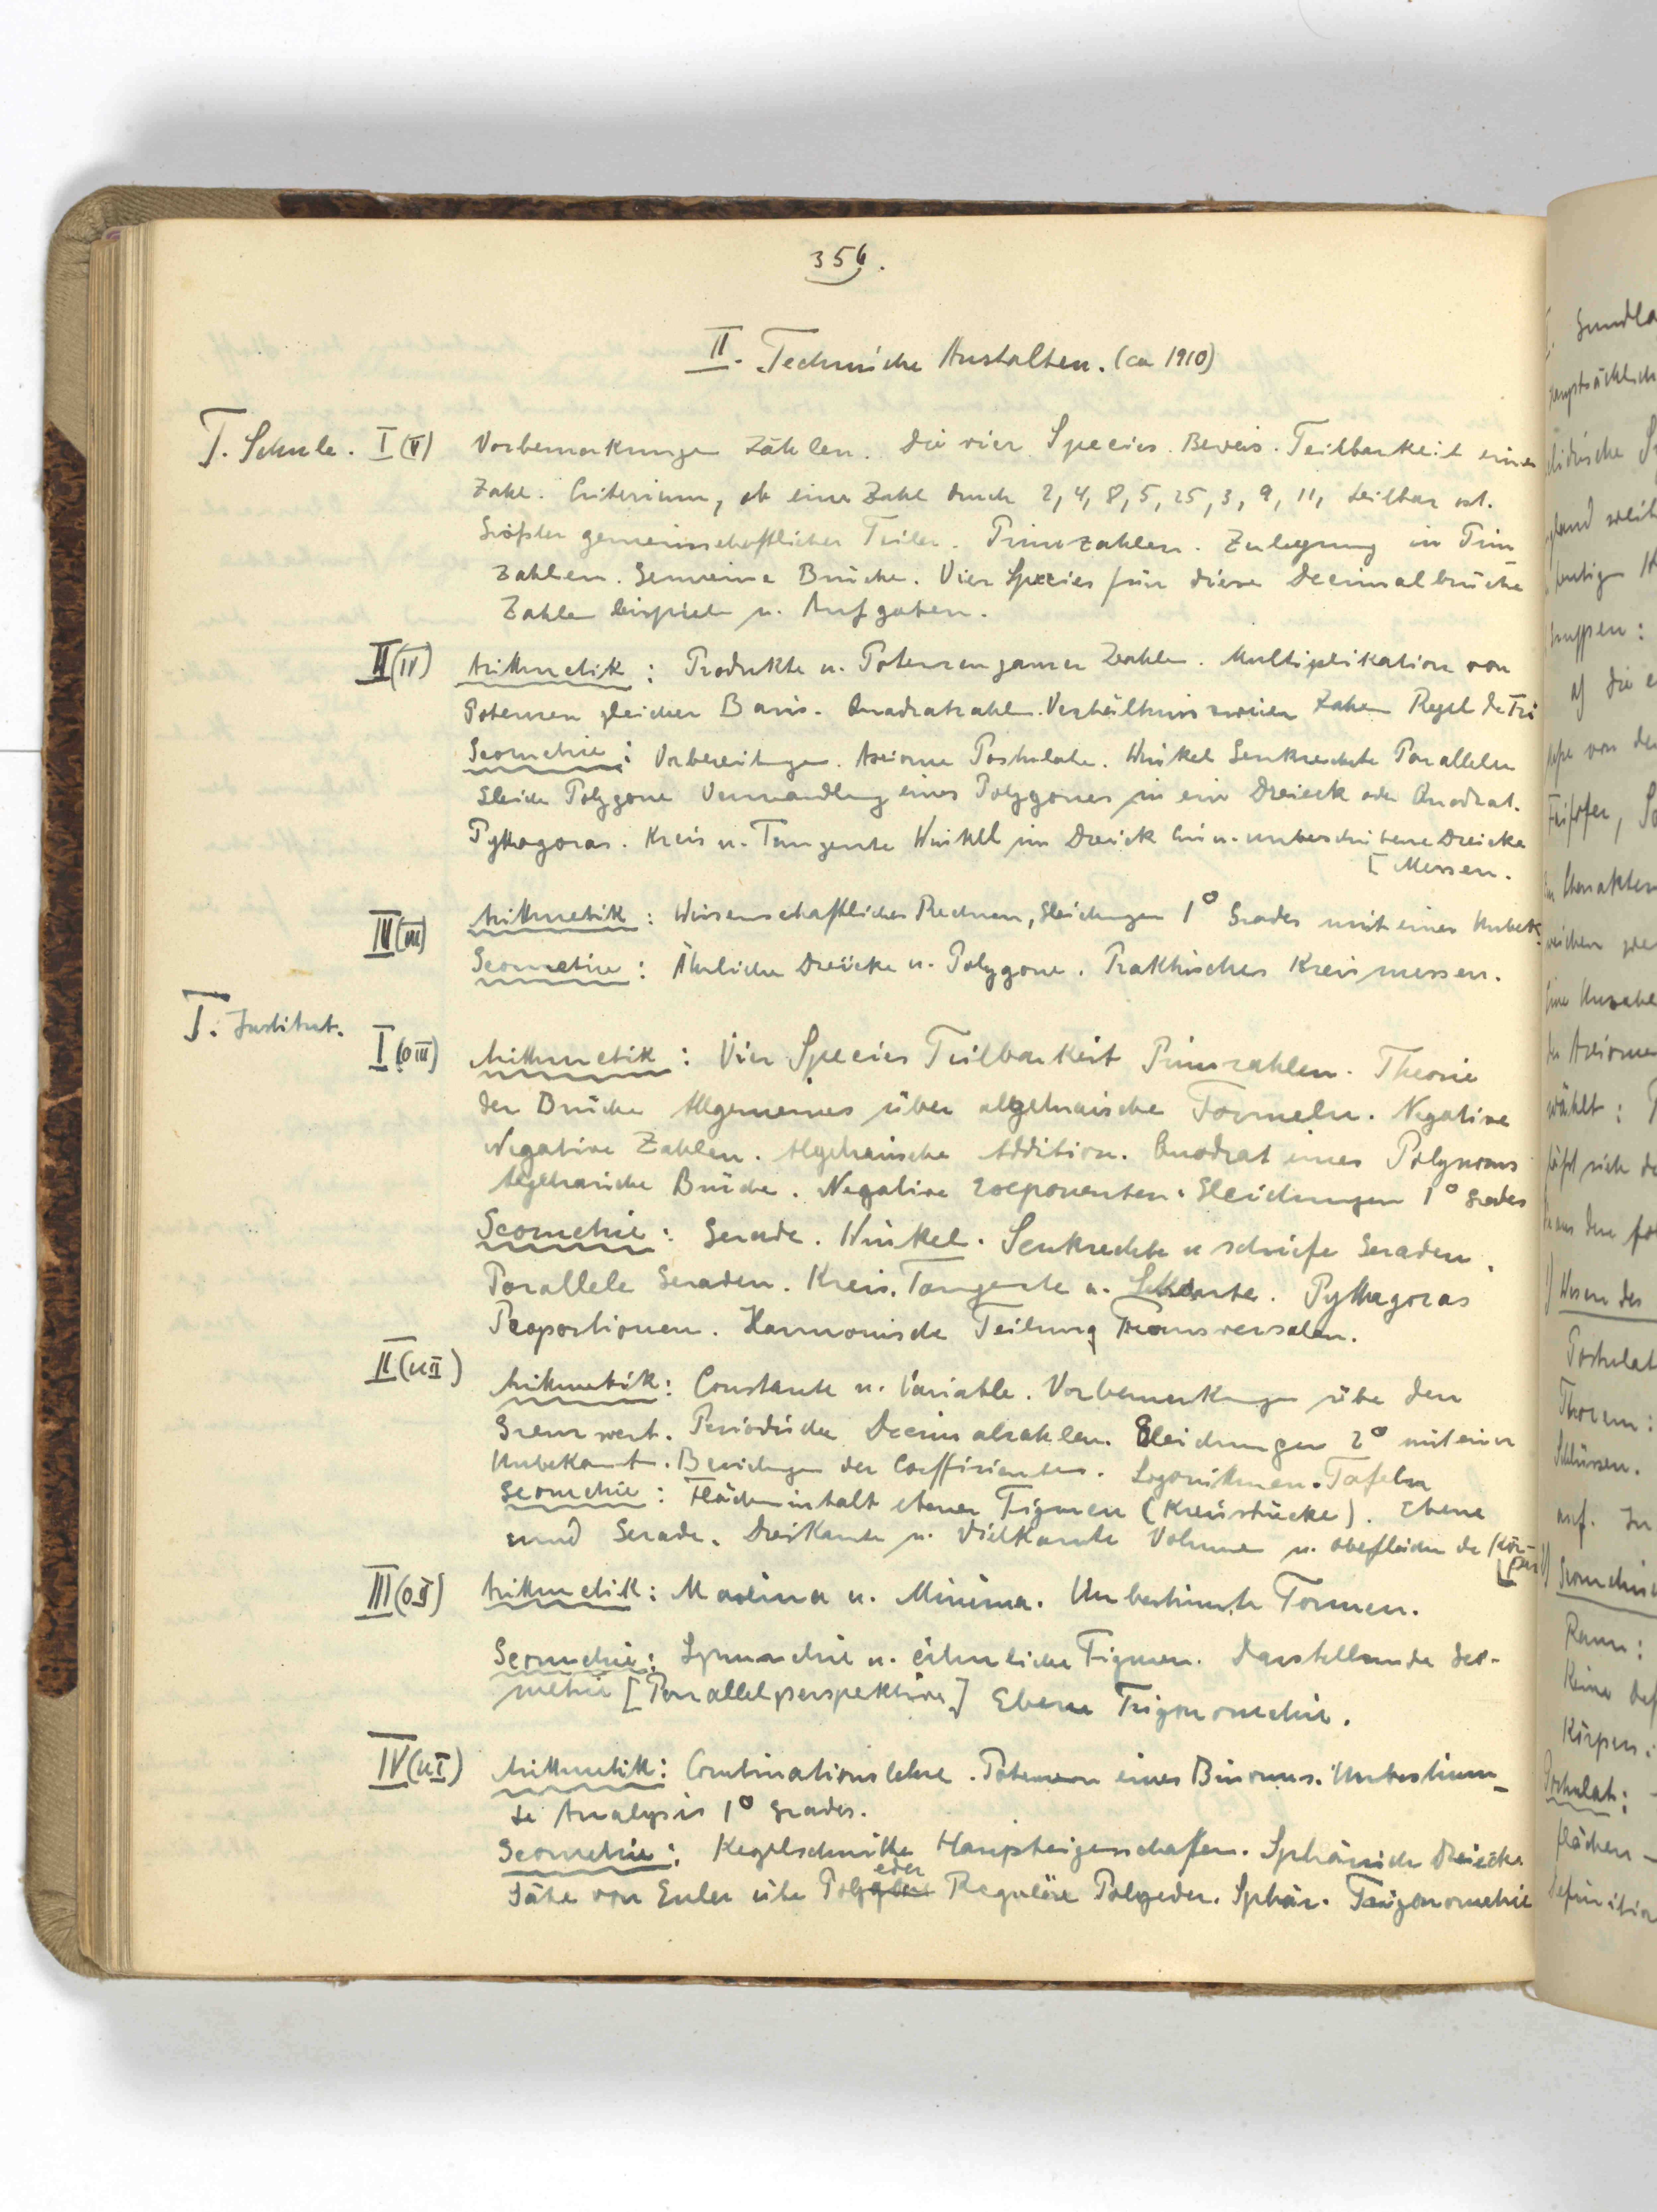 356.
II. Technische Anstalten. (ca 1910)
T. Schule. I (V) Vorbemerkungen Zählen. Die vier Species. Beweis. Teilbarkeit einer
Zahl. Criterium, ob eine Zahl durch 2, 4, 8, 5, 25, 3, 9, 11, teilbar ist.
Größter gemeinschaftlicher Teiler. Primzahlen. Zerlegung in Prim-
zahlen. Gemeine Brüche. Vier Species für diese Decimalbrüche
Zahlenbeispiele u. Aufgaben.
II (IV) Arithmetik: Produkte u. Potenzen ganzer Zahlen. Multiplikation von
Potenzen gleicher Basis. Quadratzahlen. Verhältnis zweier Zahlen Regel de Tri
Geometrie: Vorbereitungen. Axiome Postulate. Winkel Senkrechte Parallelen
Gleiche Polygone Verwandlung eines Polygones in ein Dreieck oder Quadrat.
Pythagoras. Kreis u. Tangente Winkel im Dreieck Ein u. umbeschriebene Dreiecke
[Messen.
IV (III) Arithmetik: Wissenschaftliches Rechnen, Gleichungen 1° Grades mit einer Unbek.
Geometrie: Ähnliche Dreiecke u. Polygone. Praktisches Kreismessen.
T. Institut.
I (O III) Arithmetik: Vier Species Teilbarkeit Primzahlen. Theorie
der Brüche Allgemeines über algebraische Formeln. Negative
Negative Zahlen. Algebraische Addition. Quadrat eines Polynoms
Algebraische Brüche. Negative Exponenten. Gleichungen 1° Grades
Geometrie: Gerade. Winkel. Senkrechte u schiefe Geraden.
Parallele Geraden. Kreis. Tangente u. Sekante. Pythagoras
Proportionen. Harmonische Teilung Transversalen.
II (U II) Arithmetik: Constante u. Variable. Vorbemerkungen über den
Grenzwert. Periodische Decimalzahlen. Gleichungen 2° mit einer
Unbekannt. Beziehungen der Coeffizienten. Logarithmen. Tafeln
Geometrie: Flächeninhalt ebener Figuren (Kreisstücke). Ebene
und Gerade. Dreikante u. Vielkante Volumen u. Oberflächen der Kör-
[per
III (O I) Arithmetik: Maxima u. Minima. Unbestimmte Formen.
Geometrie: Symmetrie u. ähnliche Figuren. Darstellende Geo-
metrie [Parallelperspektive] Ebene Trigonometrie.
IV (U I) Arithmetik: Combinationslehre. Potenzen eines Binoms. Unbestimm-
te Analysis 1° Grades.
Geometrie: Kegelschnitte Haupteigenschaften. Sphärische Dreiecke
Sätze von Euler über Polyeder Reguläre Polyeder. Sphär. Trigonometrie